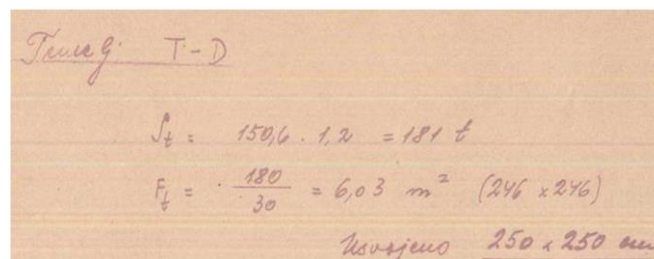 Temelj T-D
St = 150,6 . 1,2 = 181 t
Ft = 180/30 = 6,03 m² (246 x 246)
Usvojeno 250 x 250 cm